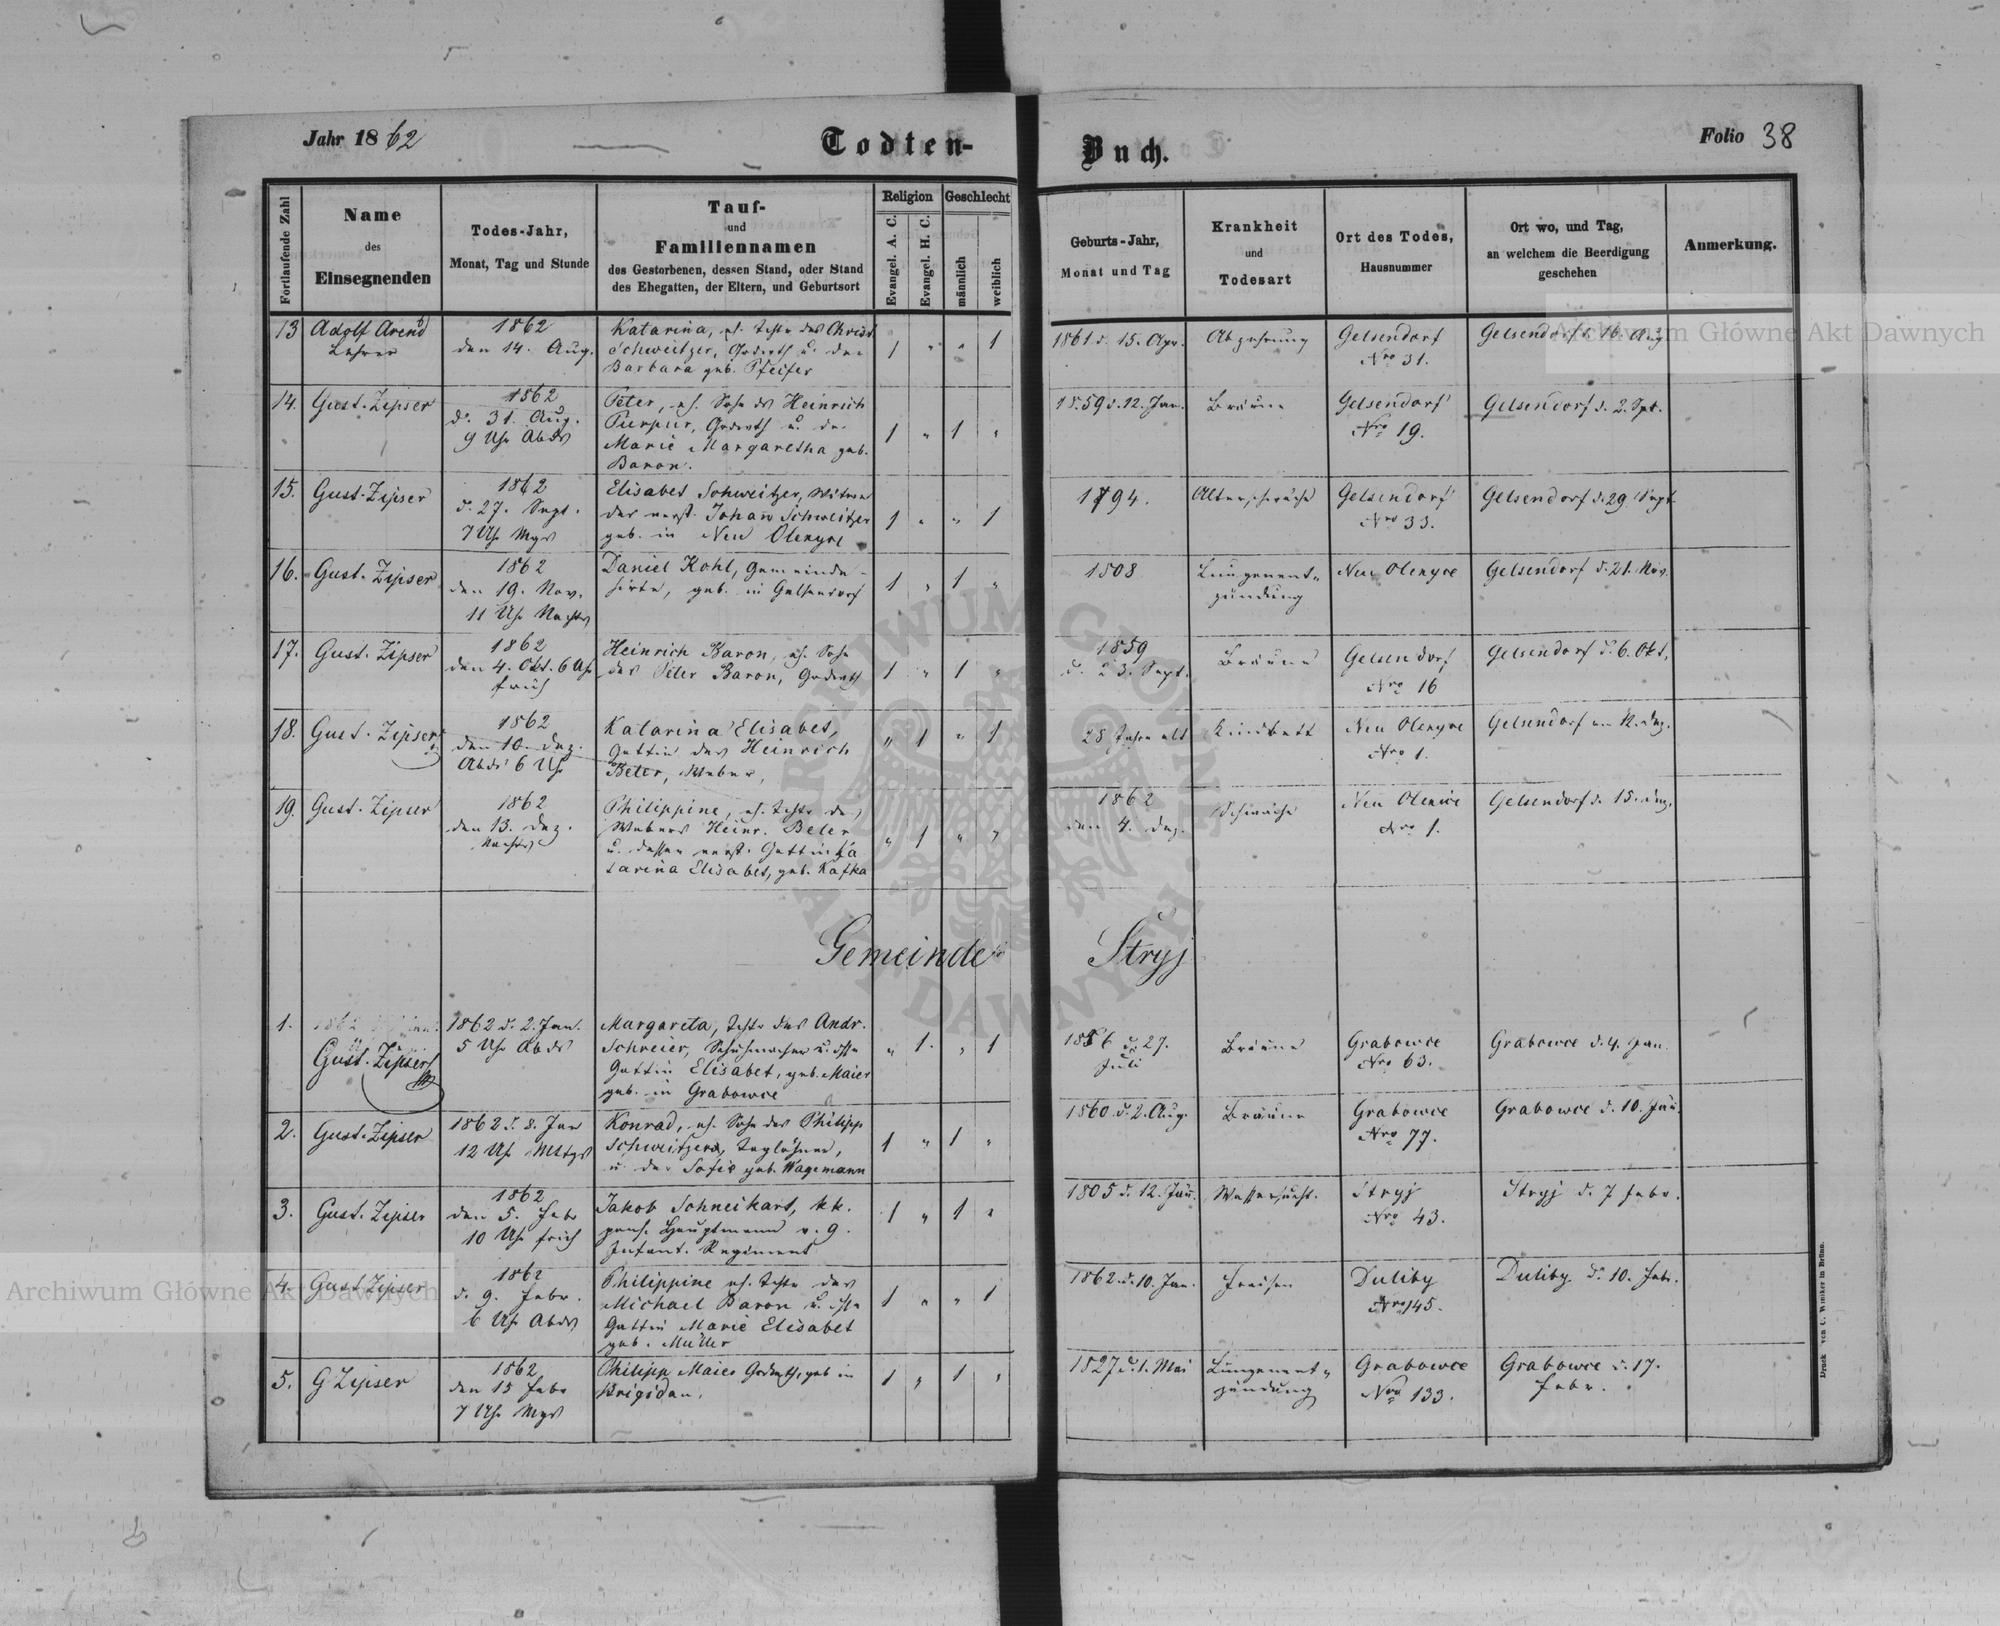 Jahr 1862
Todten-
Buch.
Folio 38
Fortlaufende Zahl
Name
des
Einsegnenden
Todes-Jahr,
Monat, Tag und Stunde
Tauf-
und
Familiennamen
des Gestorbenen, dessen Stand, oder Stand
des Ehegatten, der Eltern, und Geburtsort
Religion
Evangel. A. C.
Evangel. H. C.
Geschlecht
männlich
weiblich
Geburts-Jahr,
Monat und Tag
Krankheit
und
Todesart
Ort des Todes,
Hausnummer
Ort wo, und Tag,
an welchem die Beerdigung
geschehen
Anmerkung.
13
Adolf Arend
Lehrer
1862
den 14. Aug.
Katarina, eh. Tochter des Christ.
Schweitzer, Grdwrth u. der
Barbara geb. Pfeifer
1 " " 1
1861 d. 15. Apr.
Abzehrung
Gelsendorf
Nro 31.
Gelsendorf d. 16. Aug.
14.
Gust. Zipser
1862
d. 31. Aug.
9 Uhr Abds
Peter, eh. Sohn des Heinrich
Purpur, Grdwrth u. der
Marie Margaretha geb.
Baron.
1 " 1 "
1859 d. 12. Jan.
Bräune
Gelsendorf
Nro 19.
Gelsendorf d. 2. Spt.
15.
Gust. Zipser
1862
d. 27. Sept.
7 Uhr Mgs
Elisabet Schweitzer, Witwe
des verst. Johann Schweitzer
geb. in Neu Olexyce
1 " " 1
1794.
Altersschwäche
Gelsendorf
Nro 33.
Gelsendorf d. 29. Sept.
16.
Gust. Zipser
1862
den 19. Nov.
11 Uhr Nachts
Daniel Kohl, Gemeinde-
hirte, geb. in Gelsendorf
1 " 1 "
1808
Lungenent-
zündung
Neu Olexyce
Gelsendorf d. 21. Nov.
17.
Gust. Zipser
1862
den 4. Okt. 6 Uhr
früh
Heinrich Baron, eh. Sohn
des Peter Baron, Grdwrth
1 " 1 "
1859
d. 23. Sept.
Bräune
Gelsendorf
Nro 16
Gelsendorf d. 6. Okt.
18.
Gust. Zipser
1862
den 10. Dez.
Abds 6 Uhr
Katarina Elisabet,
Gattin des Heinrich
Beter, Weber,
" 1 " 1
28 Jahre alt
Kindbett
Neu Olexyce
Nro 1.
Gelsendorf am 12. Dez.
19.
Gust. Zipser
1862
den 13. Dez.
Nachts
Philippine, eh. Tochter des
Webers Heinr. Beter
u. dessen verst. Gattin Ka
tarina Elisabet, geb. Kafka
" 1 " "
1862
den 4. Dez.
Schwäche
Neu Olexice
Nro 1.
Gelsendorf d. 15. Dez.
Gemeinde
Stryj
1.
Gust. Zipser
1862 d. 2. Jan.
5 Uhr Abds
Margareta, Tocht. des Andr.
Schreier, Schuhmacher u. dssn
Gattin Elisabet, geb. Maier
geb. in Grabowce
" 1 " 1
1856 d. 27.
Juli
Bräune
Grabowce
Nro 63.
Grabowce d. 4. Jan.
2.
Gust. Zipser
1862 d. 8. Jan
12 Uhr Mttgs
Konrad, eh. Sohn des Philipp
Schweitzer, Taglöhner,
u. der Sofie geb. Wagemann
1 " 1 "
1860 d. 2. Aug.
Bräune
Grabowce
Nro 77.
Grabowce d. 10. Jän.
3.
Gust. Zipser
1862
den 5. Febr
10 Uhr früh
Jakob Schneikart, kk.
pens. Hauptmann v. 9.
Infant. Regiment
1 " 1 "
1805 d. 12. Jän.
Wassersucht.
Stryj
Nro 43.
Stryj d. 7 Febr.
4.
Gust Zipser
1862
d. 9. Febr.
6 Uhr Abds
Philippine eh. Tochtr des
Michael Baron u. dssn
Gattin Marie Elisabet
geb. Müller
1 " " 1
1862 d. 10. Jan.
Fraisen
Duliby
Nro 145.
Duliby d. 10. Febr.
5.
G Zipser
1862
den 15 Febr
7 Uhr Mgs
Philipp Maier Grdwrth, geb in
Brigidau.
1 " 1 "
1827 d. 1. Mai
Lungenent-
zündung
Grabowce
Nro 133.
Grabowce d. 17.
Febr.
Druck von C. Winiker in Brünn.
Archiwum Główne Akt Dawnych
Archiwum Główne Akt Dawnych
ARCHIWUM GŁÓWNE AKT DAWNYCH